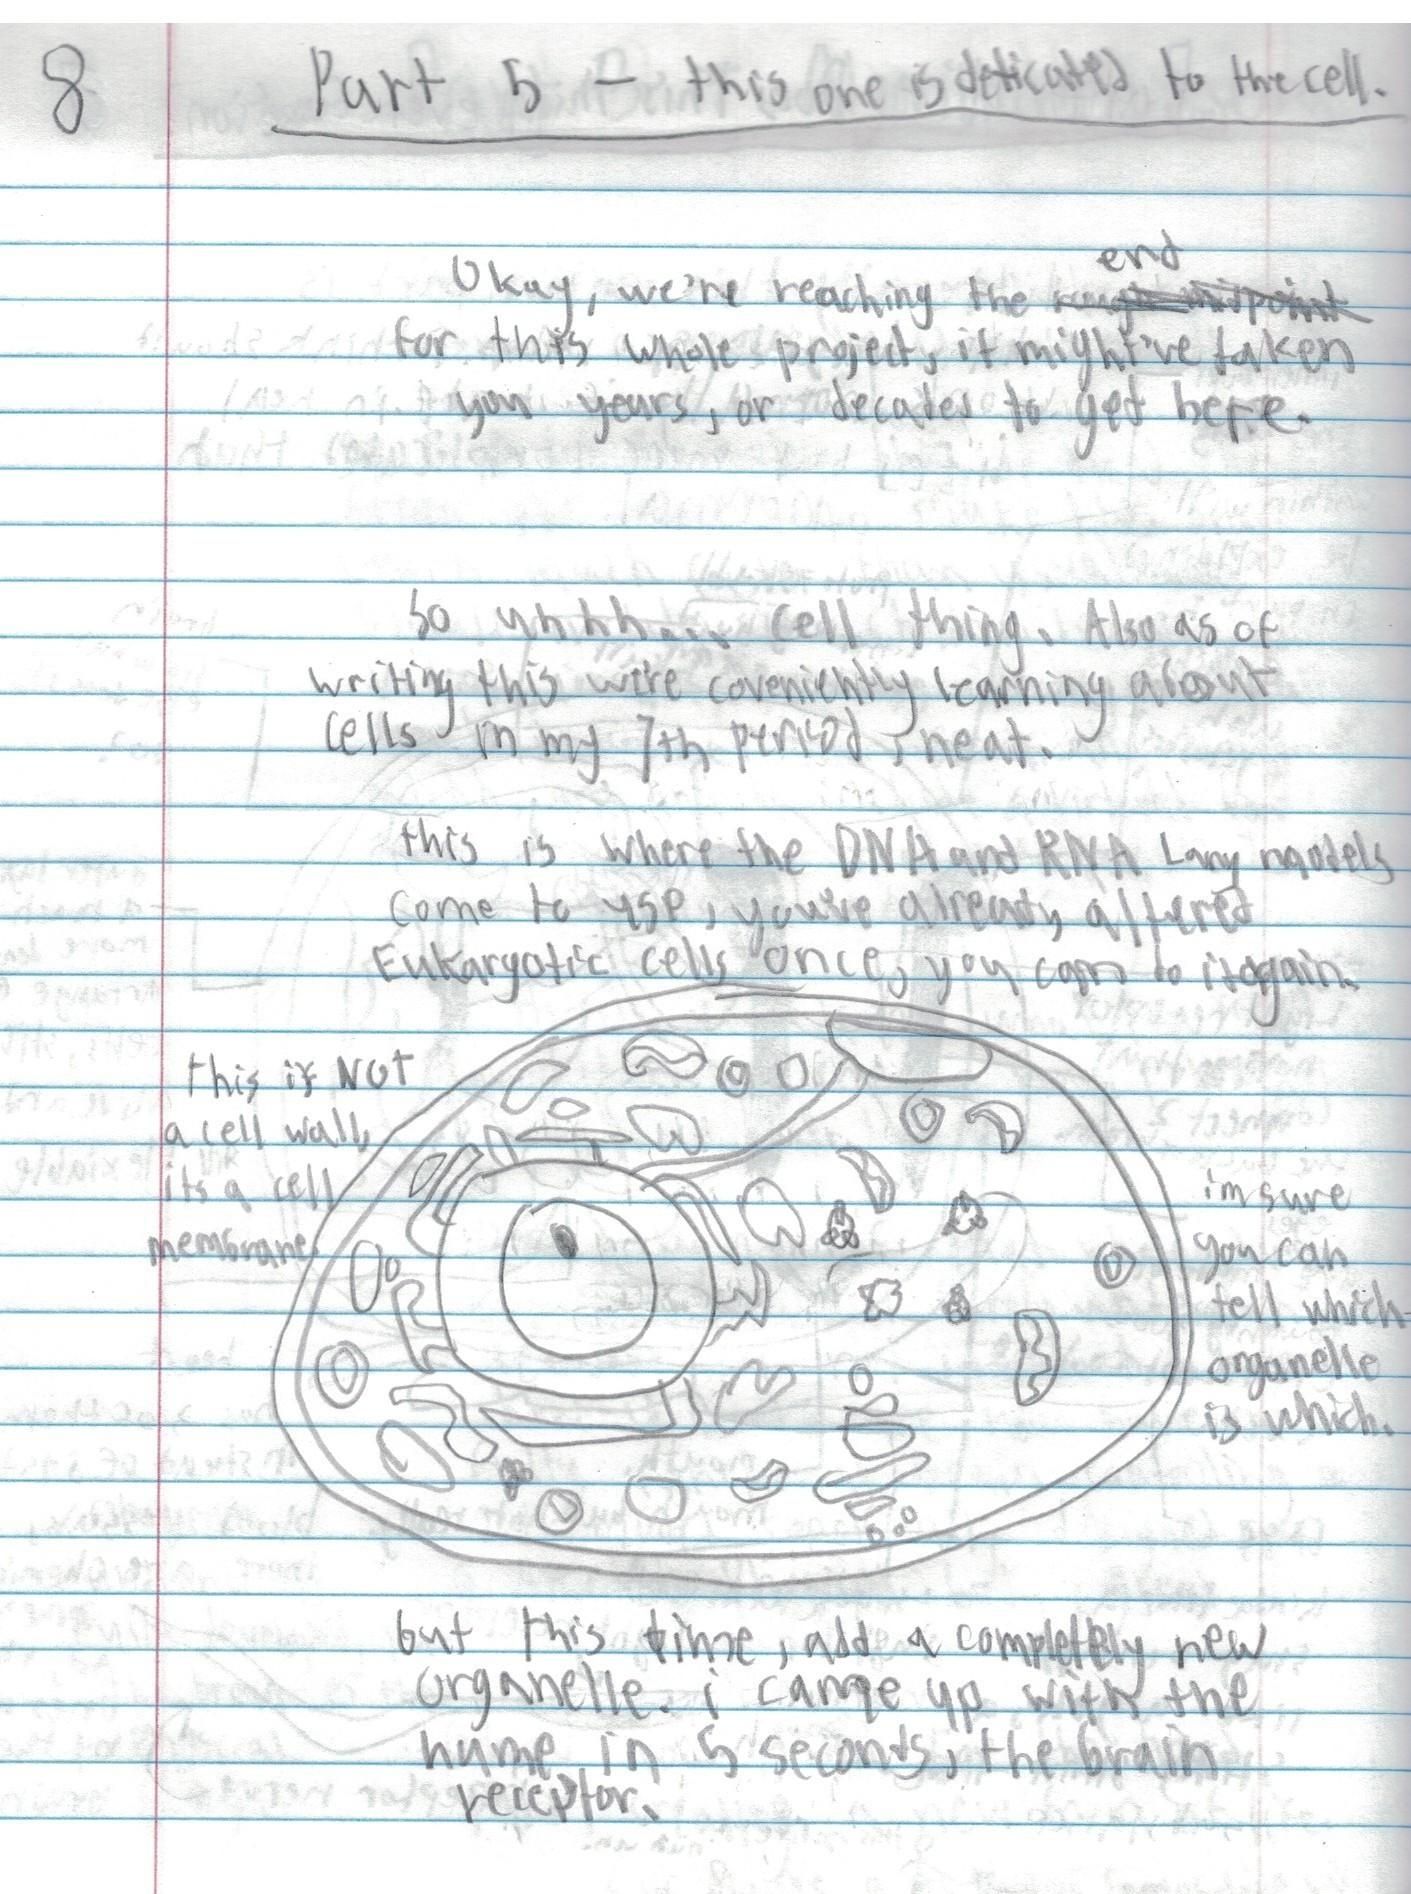 8
Part 5 - this one is deticated to the cell.
end
Okay, we're reaching the
for this whole project, it might've taken
you years, or decades to get here.
So uhhhh.... cell thing. Also as of
writing this we're coveniently learning about
cells in my 7th period, neat.
this is where the DNA and RNA Lany models
come to use, you've already altered
Eukaryotic cells once, you can do it again.
this is NOT
a cell wall,
its a cell
membrane.
im sure
you can
tell which
organelle
is which.
but this time, add a completely new
organelle. i came up with the
name in 5 seconds, the brain
receptor.